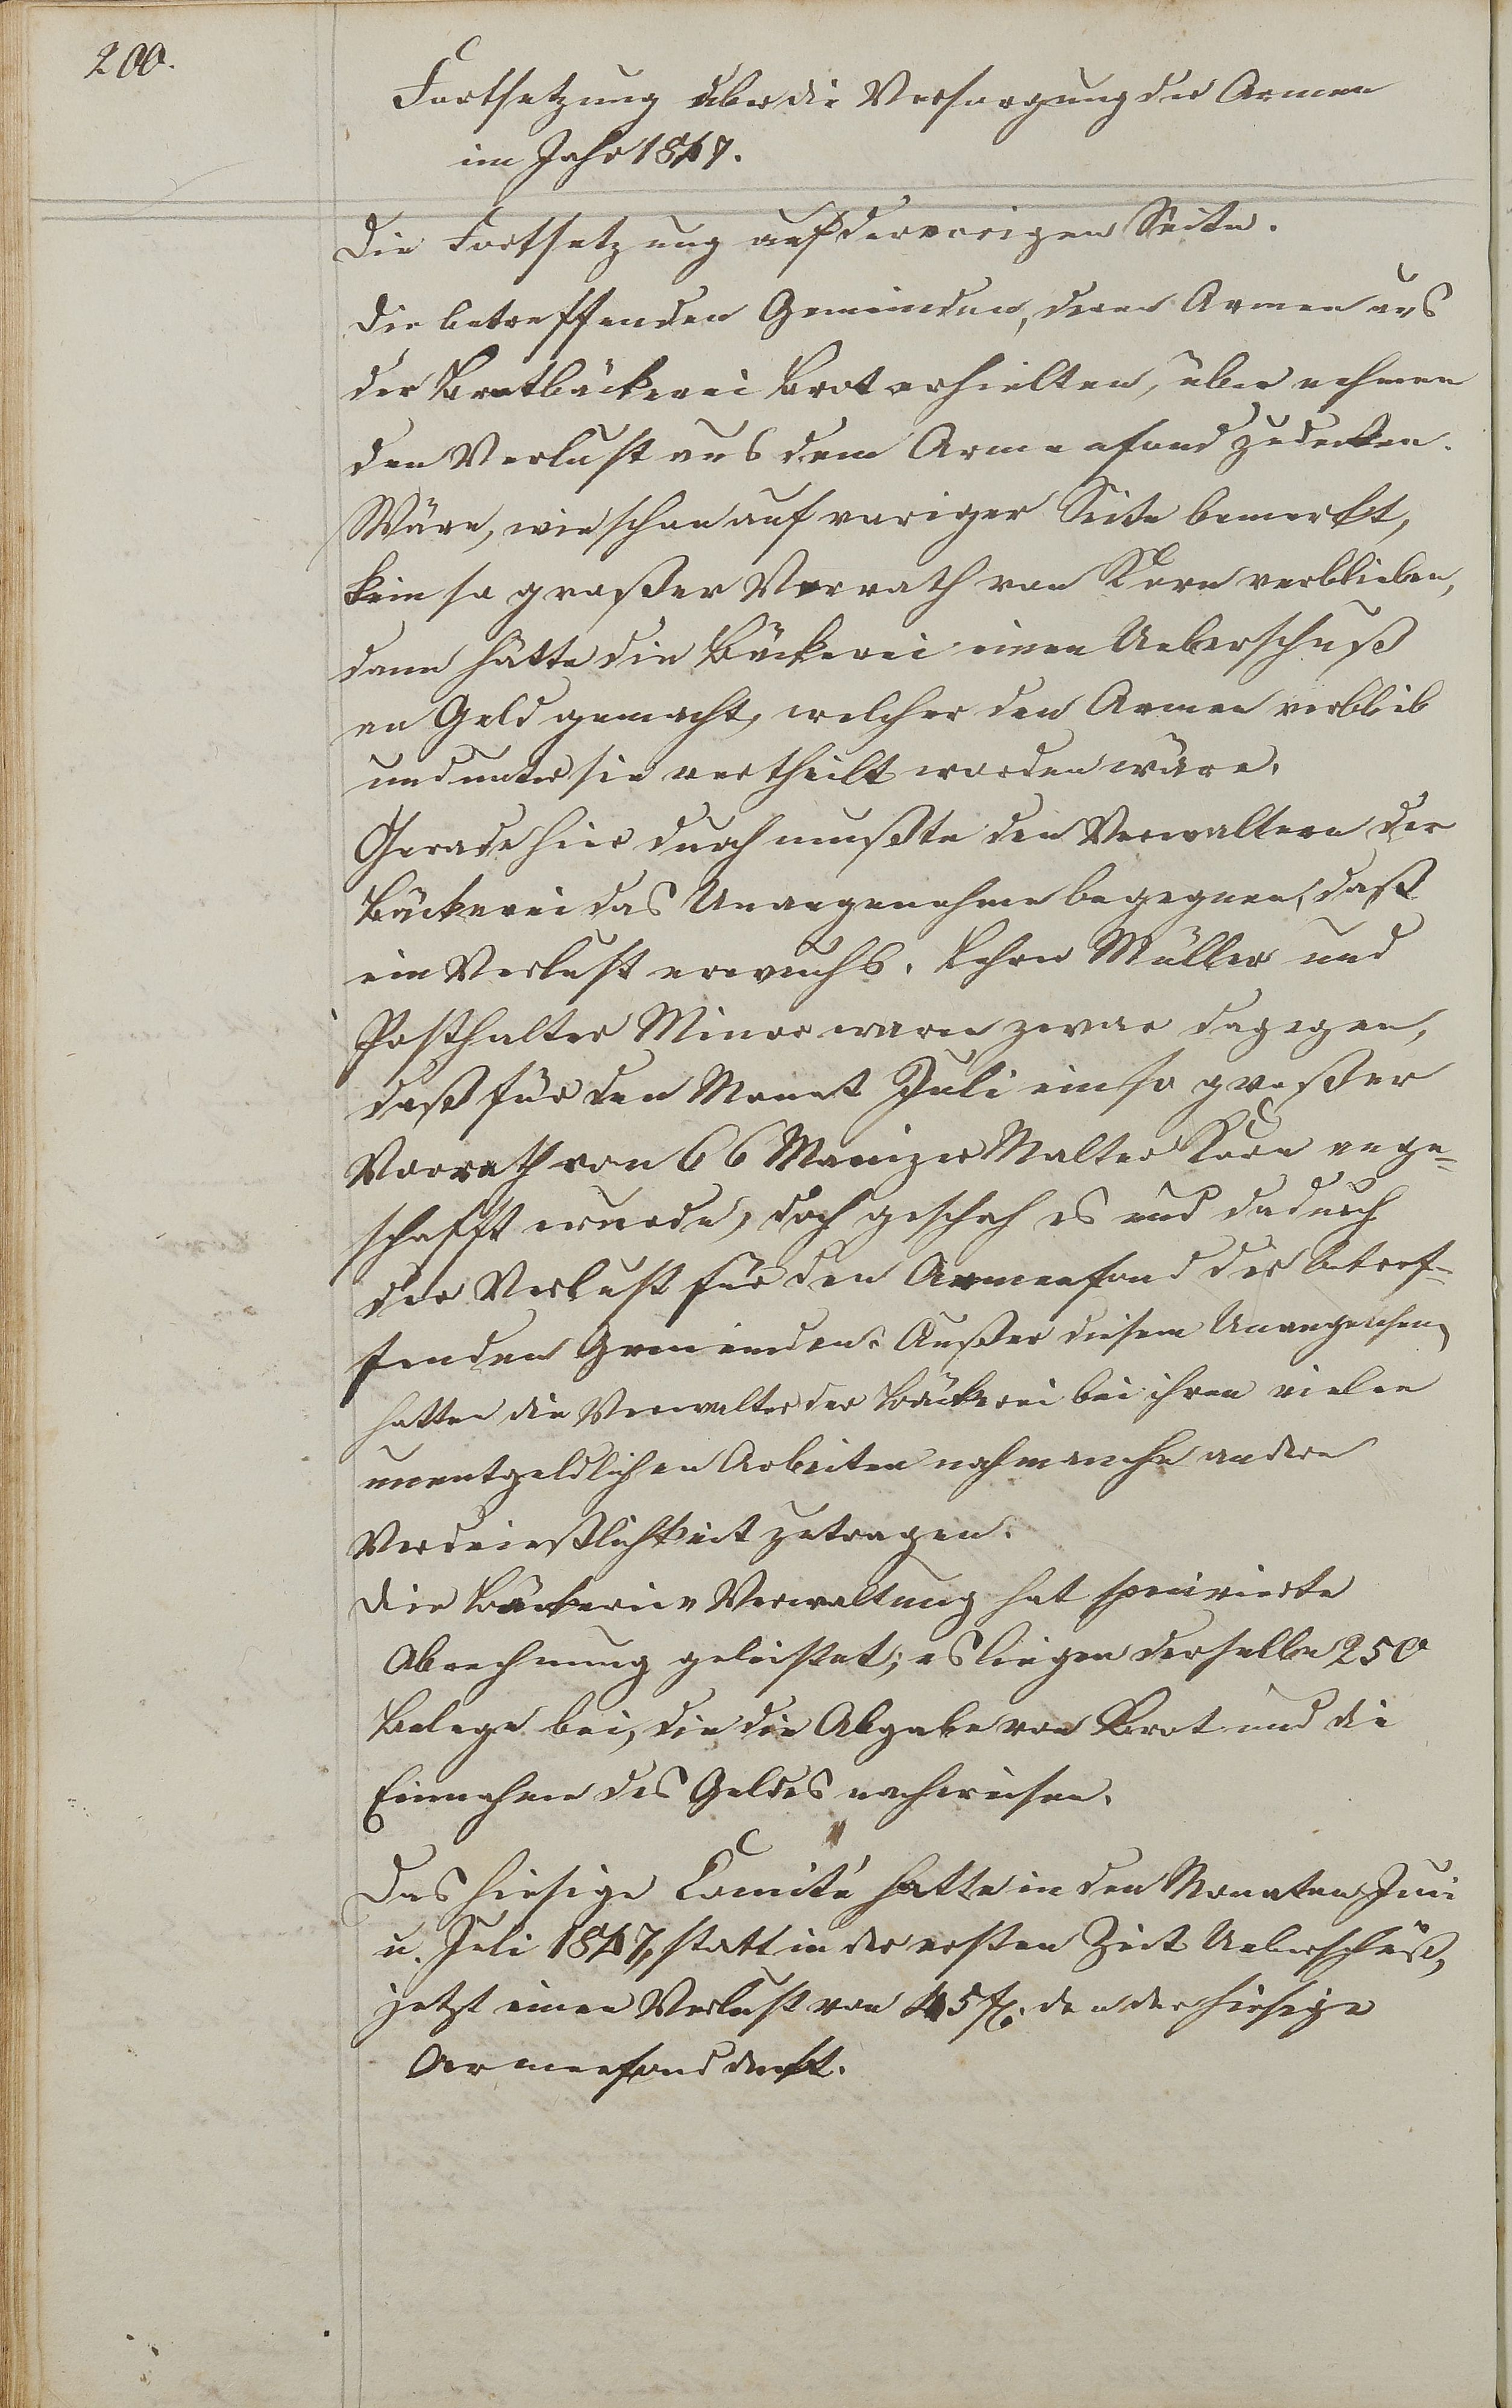 200.
Fortsetzung über die Versorgung der Armen
im Jahr 1847.
Die Fortsetzung auf der vorigen Seite.
Die betreffenden Gemeinden, deren Armen aus
der Brotbäckerei Brot erhielten, über nehmen
den Verlust aus dem Armenfond zu decken.
Wäre, wie schon auf voriger Seite bemerkt,
kein so großer Vorrath von Korn verblieben,
dann hätte die Bäckerei einen Ueberschuß
an Geld gemacht, welcher den Armen verblieb
und unter sie vertheilt worden wäre.
Gerade hier durch mußte den Verwaltern der
Bäckerei das Unangenehme begegnen, daß
ein Verlust erwuchs. Lehrer Müller und
Posthalter Minor waren zwar dagegen,
daß für den Monat Juli ein so großer
Vorrath von 66 Mainzer Malter Korn ange-
schafft wurde, doch geschah es und dadurch
der Verlust für den Armenfond der betref-
fenden Gemeinden. Außer diesem Unangenehmen
hatten die Verwalter der Bäckerei bei ihren vielen
unentgeldlichen Arbeiten noch manche andere
Verdrießlichkeit zu tragen.
Die Bäckerei-Verwaltung hat specivierte
Abrechnung geleistet; es liegen derselben 250
Belege bei, die die Abgabe von Brot und die
Einnahme des Geldes nachweisen.
Das hiesige Comité hatte in den Monaten Juni
u. Juli 1847, statt in der ersten Zeit Ueberschuß,
jetzt einen Verlust von 45 fl. den der hiesige
Armenfond deckt.